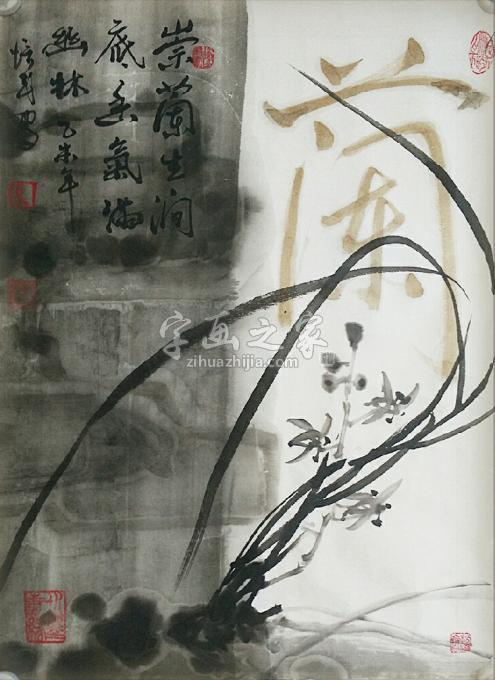 崇蘭生澗
底香氣滿
幽林乙未年
蘭
字画之家
zihuazhijia.com